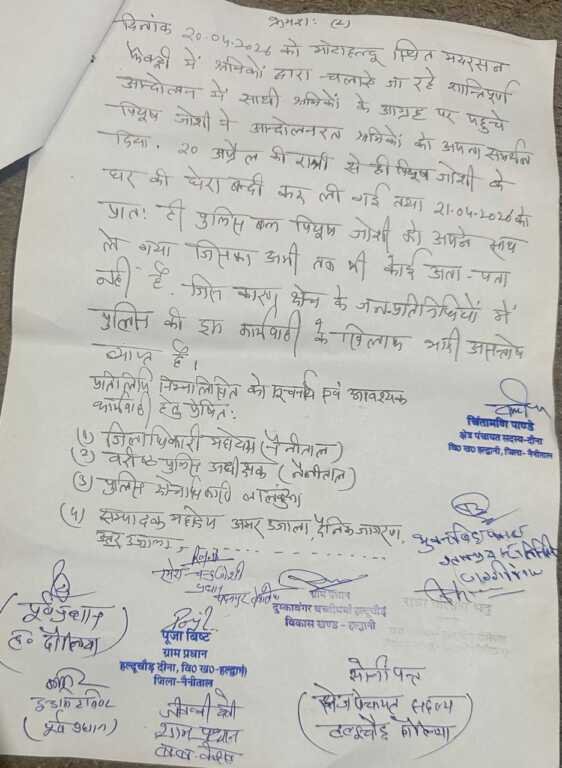 क्रमशः (2)
दिनांक 20-04-2026 को मोटाहल्दू स्थित
फैक्ट्री में श्रमिकों द्वारा चलाये जा रहे शान्तिपूर्ण
आन्दोलन में साथी श्रमिकों के आग्रह पर पहुचे
पियूष जोशी ने आन्दोलनरत श्रमिकों को अपना समर्थन
दिया. 20 अप्रैल की रात्री से ही पियूष जोशी के
घर की घेराबन्दी कर ली गई तथा 21-04-2026 को
प्रातः ही पुलिस बल पियूष जोशी को अपने साथ
ले गया जिसका अभी तक भी कोई अता-पता
नही है. जिस कारण क्षेत्र के जनप्रतिनिधियों में
पुलिस की इस कार्यवाही के खिलाफ भारी असन्तोष
व्याप्त है।
प्रतीलिपि निम्नलिखित को सूचनार्थ एवं आवश्यक
कार्यवाही हेतु प्रेषित:
(1) जिलाधिकारी महोदय (नैनीताल)
(2) वरिष्ठ पुलिस अधीक्षक (नैनीताल)
(3) पुलिस
(4) सम्पादक महोदय अमर उजाला दैनिक जागरण,
चिंतामणि पाण्डे
क्षेत्र पंचायत सदस्य-दीना
वि० ख० हल्द्वानी, जिला- नैनीताल
जोशी
प्रधान
(पूर्व प्रधान
ह० दौलिया)
पूजा बिष्ट
ग्राम प्रधान
हल्दूचौड़ दीना, वि० ख०-हल्द्वानी
जिला-नैनीताल
ग्राम प्रधान
विकास खण्ड - हल्द्वानी
(पूर्व प्रधान)
देवी
ग्राम प्रधान
पन्त
(क्षेत्र पंचायत सदस्य
हल्दूचौड़ दौलिया)